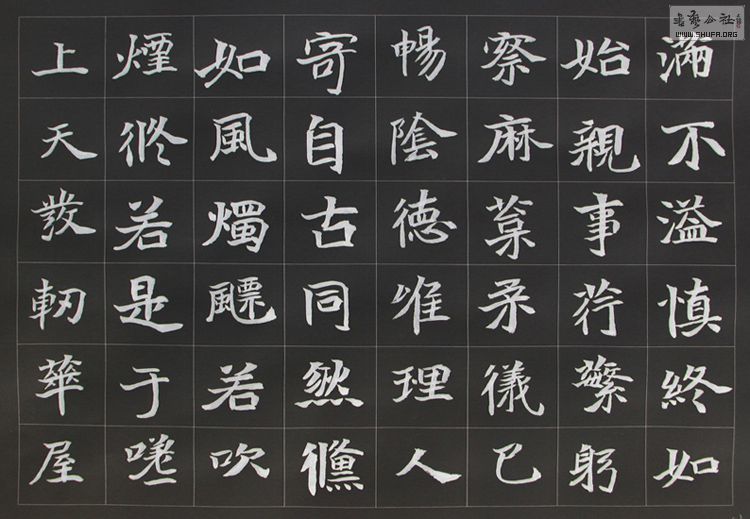 滿不溢慎終如
始親事荇蘩躬
察麻葈柔儀已
暢陰德唯理人
寄自古同然儻
如風燭飄若吹
煙倏若是于嗟
上天發軔華屋
書藝公社
WWW.SHUFA.ORG